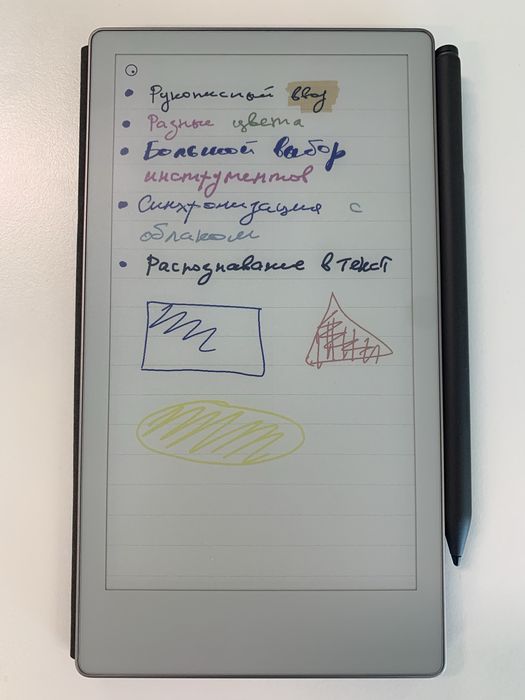 • Рукописный ввод
• Разные цвета
• Большой выбор
инструментов
• Синхронизация с
облаком
• Распознавание в текст